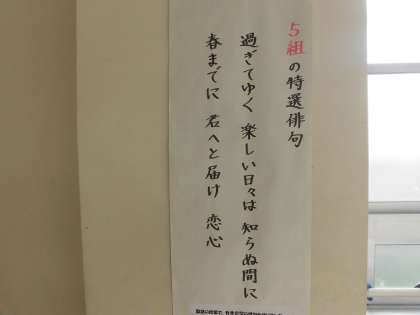 5組の特選俳句
過ぎてゆく 楽しい日々は 知らぬ間に
春までに 君へと届け 恋心